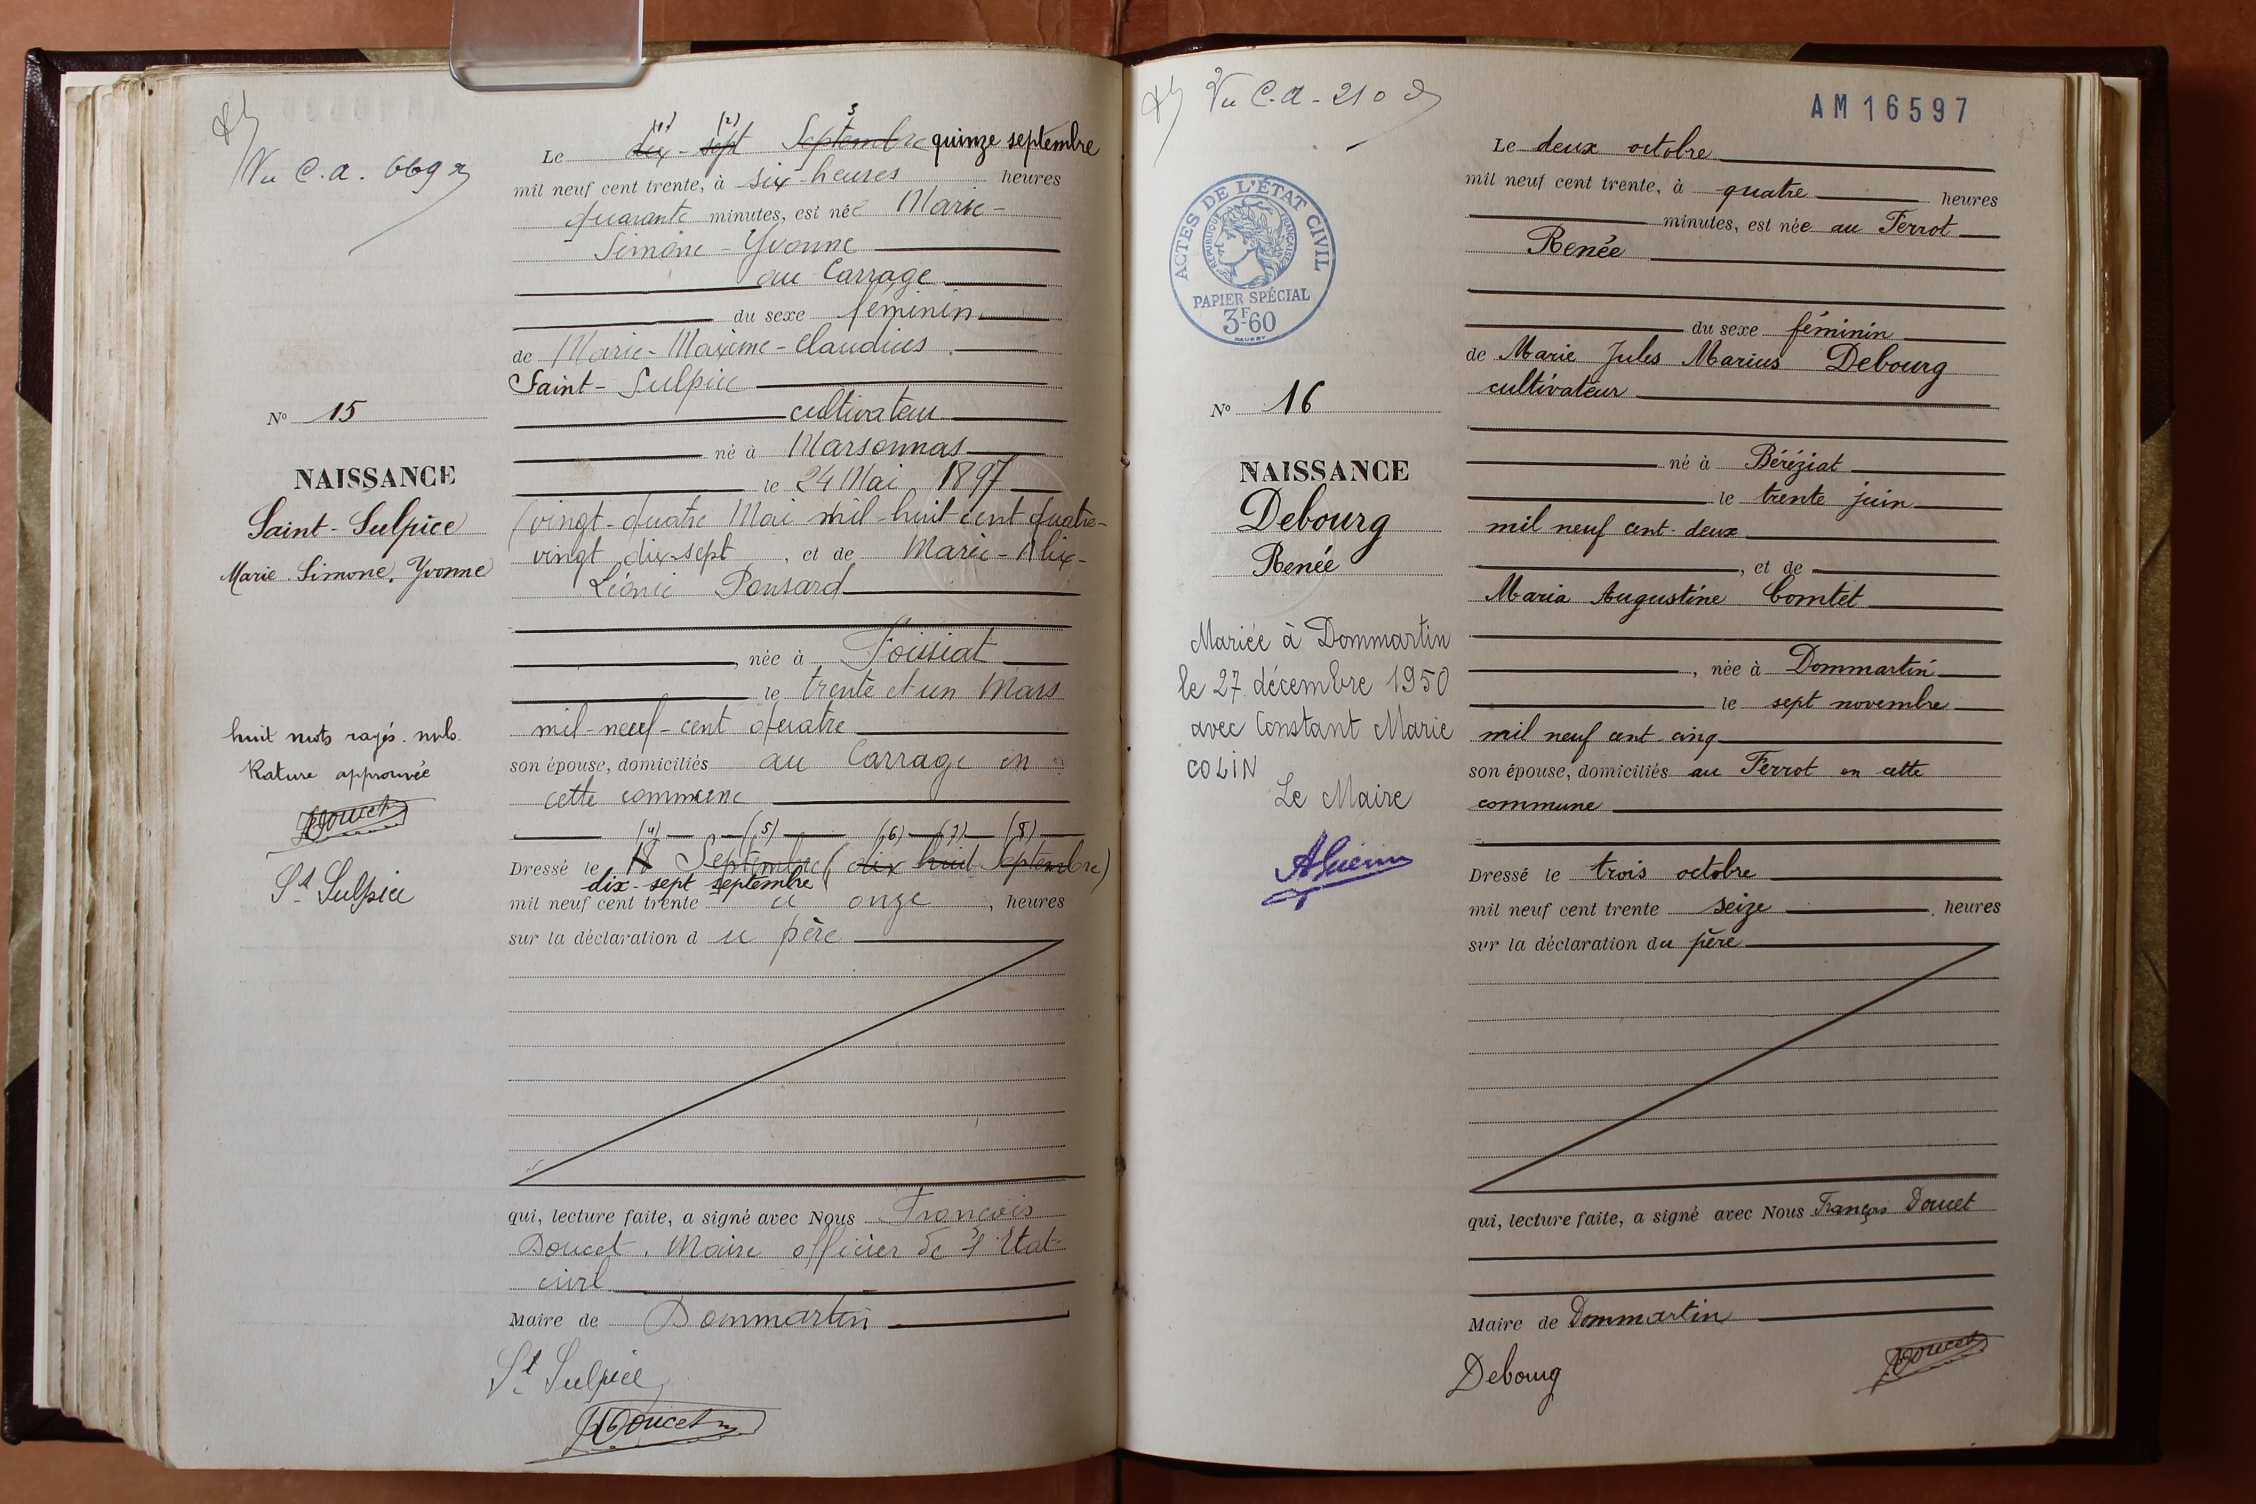 Vu C.A. 669
Le dix - sept Septembre quinze septembre
(1) (2) 3
mil neuf cent trente, à six heures heures
quarante minutes, est née Marie-
Simone - Yvonne
au Carrage
du sexe féminin
de Marie - Maxime - Claudius
Saint - Sulpice
cultivateur
né à Marsonnas
le 24 Mai 1897
(vingt-quatre Mai mil-huit cent quatre-
vingt dix-sept, et de Marie - Alix -
Léonie Ponsard
, née à Foissiat
le trente et un Mars
mil-neuf-cent quatre
son épouse, domiciliés au Carrage en
cette commune
(4) (5) (6) (7) (8)
Dressé le 18 Septembre (dix huit Septembre)
dix-sept septembre
mil neuf cent trente à onze, heures
sur la déclaration du père
qui, lecture faite, a signé avec Nous François
Doucet, Maire officier de l'Etat-
civil
Maire de Dommartin
St Sulpice
Doucet
No 15
NAISSANCE
Saint-Sulpice
Marie. Simone. Yvonne
huit mots rayés nuls.
Rature approuvée
Doucet
St Sulpice
Vu C.A - 210
AM16597
ACTES DE L'ÉTAT CIVIL
RÉPUBLIQUE FRANÇAISE
PAPIER SPÉCIAL
3F60
No 16
NAISSANCE
Debourg
Renée
Mariée à Dommartin
le 27 décembre 1950
avec Constant Marie
COLIN
Le Maire
Le deux octobre
mil neuf cent trente, à quatre heures
minutes, est née au Ferrot
Renée
du sexe féminin
de Marie Jules Marius Debourg
cultivateur
né à Béréziat
le trente juin
mil neuf cent-deux
, et de
Maria Augustine Comtet
, née à Dommartin
le sept novembre
mil neuf cent-cinq
son épouse, domiciliés au Ferrot en cette
commune
Dressé le trois octobre
mil neuf cent trente seize, heures
sur la déclaration du père
qui, lecture faite, a signé avec Nous François Doucet
Maire de Dommartin
Debourg
Doucet